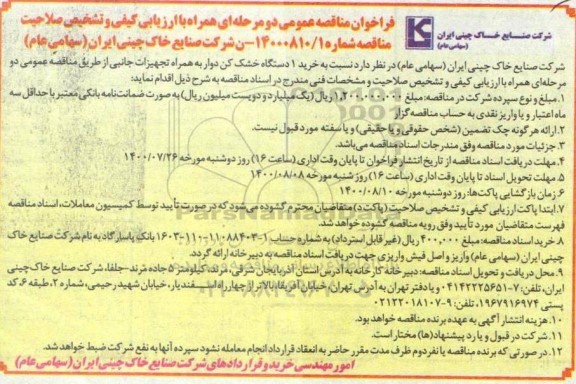 شرکت صنایع خاک چینی ایران
(سهامی عام)
فراخوان مناقصه عمومی دو مرحله‌ای همراه با ارزیابی کیفی و تشخیص صلاحیت
مناقصه شماره ۱۴۰۰۰۸۱۰/۱-ن شرکت صنایع خاک چینی ایران (سهامی عام)
شرکت صنایع خاک چینی ایران (سهامی عام) در نظر دارد نسبت به خرید ۱ دستگاه خشک کن دوار به همراه تجهیزات جانبی از طریق مناقصه عمومی دو
مرحله‌ای همراه با ارزیابی کیفی و تشخیص صلاحیت و مشخصات فنی مندرج در اسناد مناقصه به شرح ذیل اقدام نماید:
۱. مبلغ و نوع سپرده شرکت در مناقصه: مبلغ ۱,۲۰۰,۰۰۰,۰۰۰ ریال (یک میلیارد و دویست میلیون ریال) به صورت ضمانت‌نامه بانکی معتبر با حداقل سه
ماه اعتبار و یا واریز نقدی به حساب مناقصه گزار
۲. ارائه هر گونه چک تضمین (شخص حقوقی و یا حقیقی) و یا سفته مورد قبول نیست.
۳. جزئیات مورد مناقصه وفق مندرجات اسناد مناقصه می‌باشد.
۴. مهلت دریافت اسناد مناقصه از تاریخ انتشار فراخوان تا پایان وقت اداری (ساعت ۱۶) روز دوشنبه مورخه ۱۴۰۰/۰۷/۲۶
۵. مهلت تحویل اسناد تا پایان وقت اداری (ساعت ۱۶) روز شنبه مورخه ۱۴۰۰/۰۸/۰۸
۶. زمان بازگشایی پاکت‌ها: روز دوشنبه مورخه ۱۴۰۰/۰۸/۱۰
۷. ابتدا پاکت ارزیابی کیفی و تشخیص صلاحیت (پاکت د) متقاضیان محترم گشوده می‌شود که در صورت تأیید توسط کمیسیون معاملات، اسناد مناقصه
فهرست متقاضیان مورد تأیید وفق رویه مناقصه گشوده خواهد شد.
۸. خرید اسناد مناقصه: مبلغ ۴۰۰,۰۰۰ ریال (غیر قابل استرداد) به شماره حساب ۱-۱۱۰۸۸۴۰۳-۱۱۰-۱۶۰۳ بانک پاسارگاد به نام شرکت صنایع خاک
چینی ایران (سهامی عام) واریز و اصل فیش واریزی جهت دریافت اسناد مناقصه به دبیرخانه ارائه گردد.
۹. محل دریافت و تحویل اسناد مناقصه: دبیرخانه کارخانه به آدرس استان آذربایجان شرقی، مرند، کیلومتر ۵ جاده مرند-جلفا، شرکت صنایع خاک چینی
ایران، تلفن: ۷-۰۴۱۴۲۲۲۵۶۵۱ و یا دفتر تهران به آدرس تهران، خیابان آفریقا، بالاتر از چهارراه اسفندیار، خیابان شهید رحیمی، شماره ۲، طبقه ۶، کد
پستی ۱۹۶۷۹۱۶۹۷۴، تلفن: ۹-۰۲۱۲۲۰۱۸۱۰۷
۱۰. هزینه انتشار آگهی به عهده برنده مناقصه خواهد بود.
۱۱. شرکت در قبول و یا رد پیشنهاد(ها) مختار است.
۱۲. در صورتی که برنده مناقصه یا نفر دوم ظرف مدت مقرر حاضر به انعقاد قرارداد انجام معامله نشود سپرده آنها به نفع شرکت ضبط خواهد شد.
امور مهندسی خرید و قراردادهای شرکت صنایع خاک چینی ایران (سهامی عام)